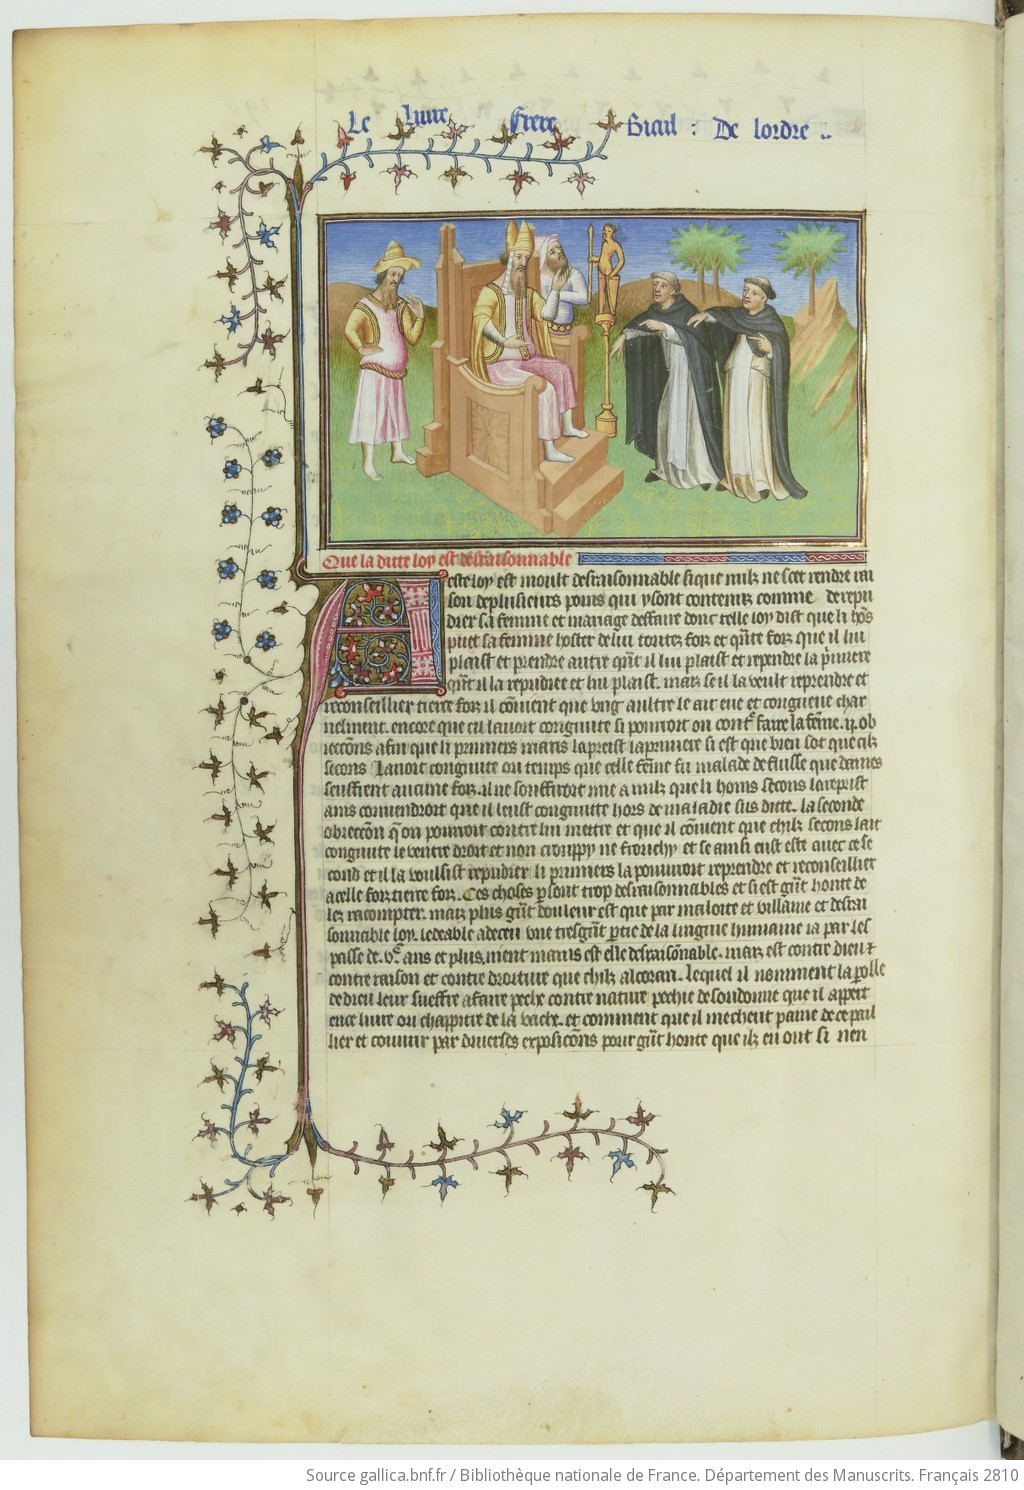 Le Liure Frere Bicul : De lordre ..
Que la ditte loy est desraisonnable
Ceste loy est moult desraisonnable si que nulz ne scet rendre rai
son de plusieurs poins qui y sont contenuz comme de repu
dier sa femme et mariage deffaire donc telle loy dist que li hōs
puet sa femme hoster de lui toutez foiz et qūte foiz que il lui
plaist et prendre autre qūt il lui plaist et reprendre la p̄miere
qūt il la repudiee et lui plaist. maiz se il la veult reprendre et
reconseillier tierce foiz il cōuient que vng aultre le ait eue et congneue char
nelment. encore que cil lauoit congnute si pouroit on contˢ faire la fēme. ij. ob
ieccōns afin que li premiers maris la preist la premiere si est que bien scot que cilz
secons lauoit congnute ou temps que celle fēme fu malade de fluisse que dames
seuffrent aucune foiz. il ne souffiroit mie a nulz que li homs secons la reprist
ains conuendroit que il leust congnutte hors de maladie sus ditte. la seconde
obieccōn q̄ on pouroit contre lui mettre et que il cōuient que chilz secons lait
congnute le ventre droit et non crouppy ne fronchy et se ainsi eust este auec ce se
cond et il la voulsist repudier li premiers la pouroit reprendre et reconseillier
a celle foiz tierce foiz. Ces choses p̄ sont trop desraisonnables et si est grāt honte de
lez racompter. maiz plus grāt douleur est que par maloite et villaine et desrai
sonnable loy. vne tresgrāt p̄tie de la lingnie humaine ia par les
passe de. vᶜ. ans et plus. ment mauis est elle desraisōnable. maiz est contre dieu et
contre raison et contre droiture que chilz alcoran. lequel il nomment la polle
de dieu leur sueffre a faire pechie contre nature pechie de sondomie que il appert
en ce liure ou chappitre de la vache. et comment que il mecheut paine de ce pail
lier et couurir par diuerses exposicōns pour grāt honte que ilz en ont si nen
Source gallica.bnf.fr / Bibliothèque nationale de France. Département des Manuscrits. Français 2810